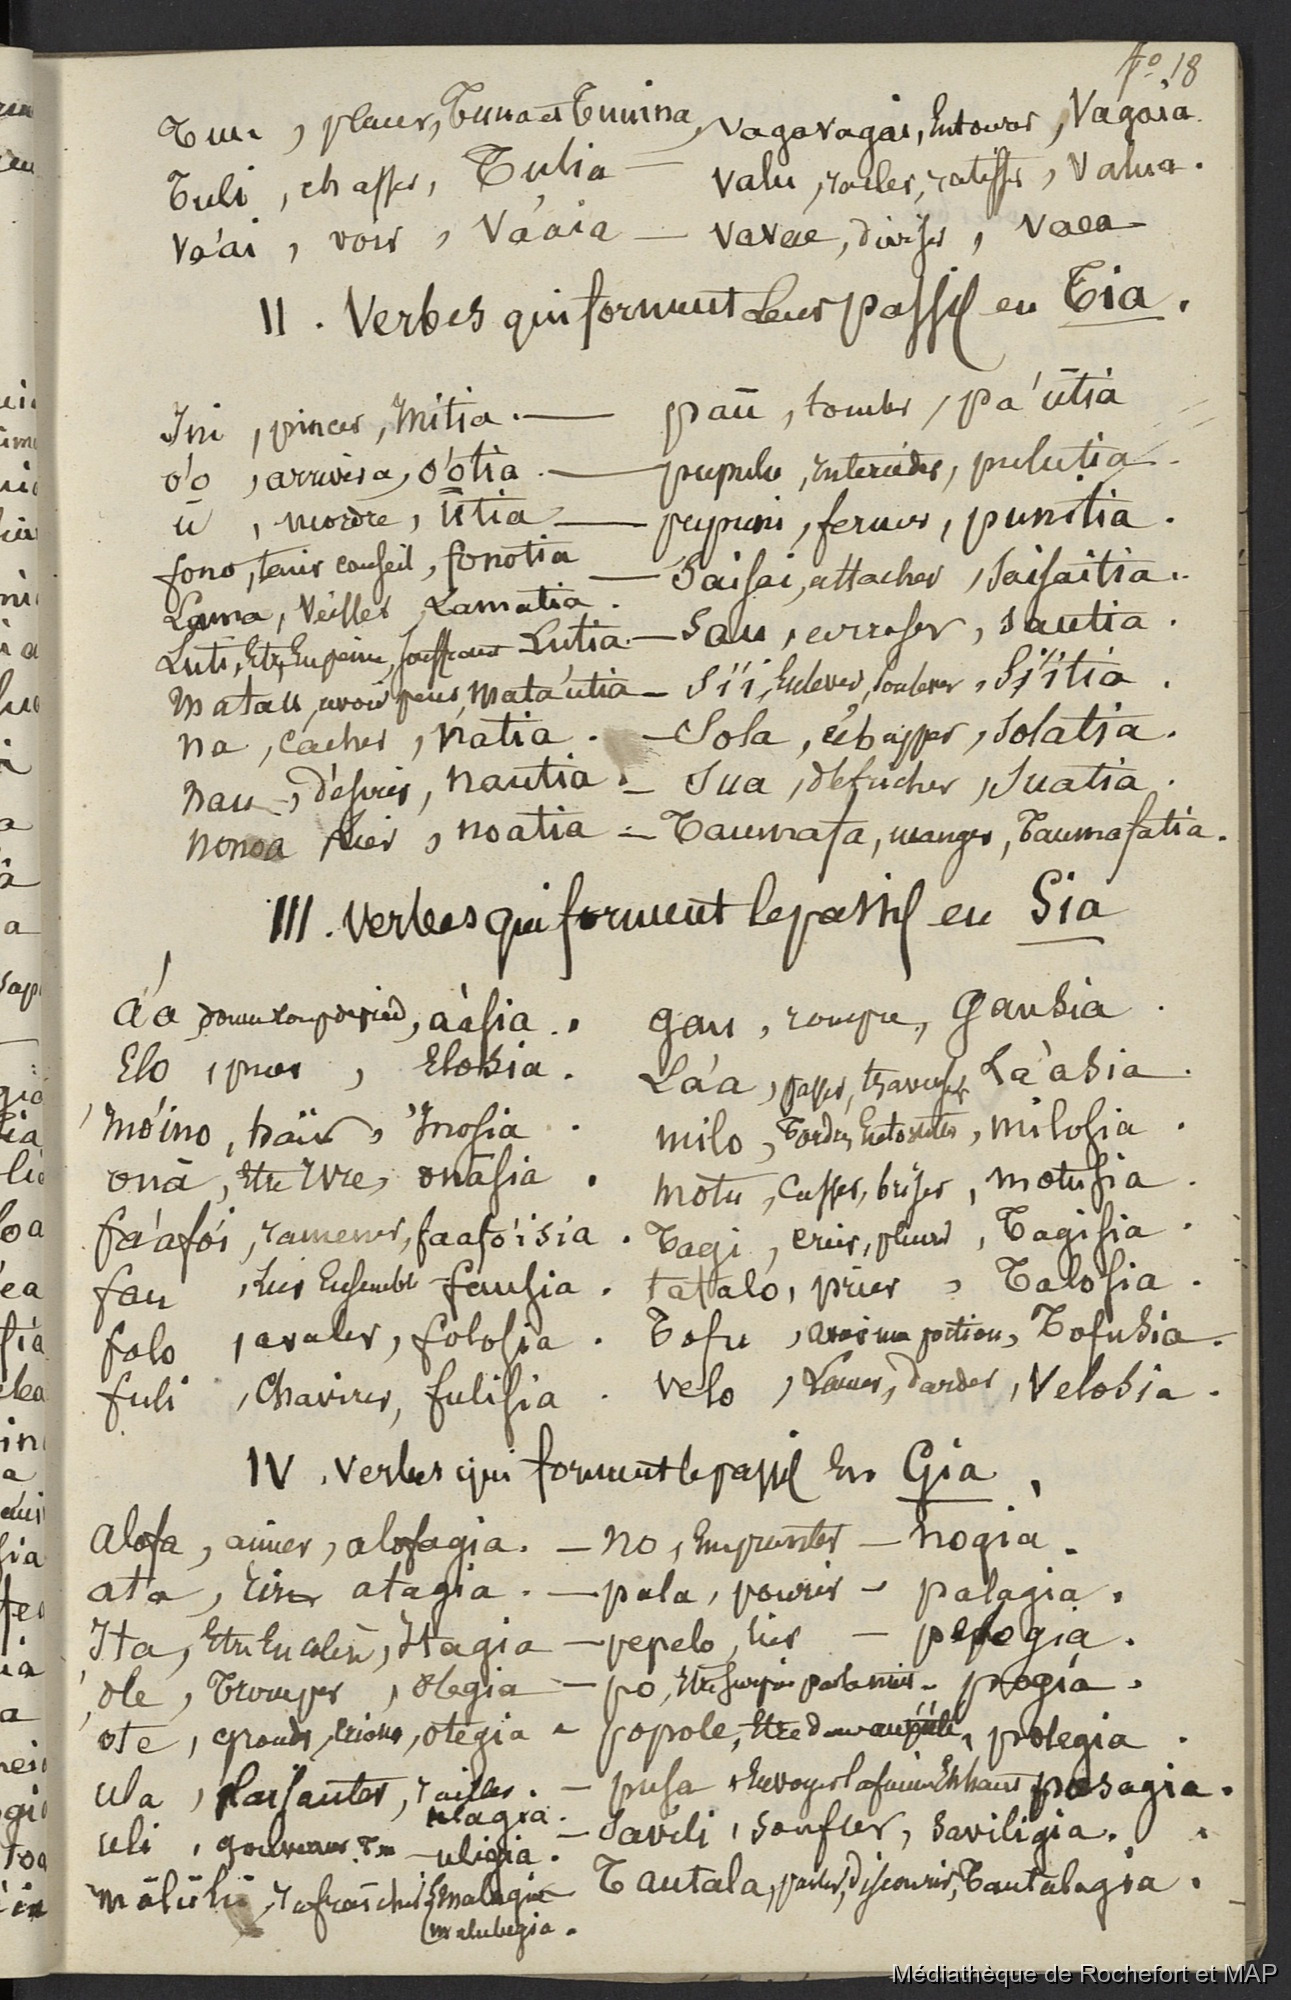 fo. 18
Tuu, placer, Tuuna et Tuuina, vagavagai, Entourer, Vagaia.
Tuli, chasser, Tulia — valu, racler, ratisser, Valua.
Va'ai, voir, Va'aia — vavae, diviser, vaea
II. Verbes qui forment Leur passif en Tia.
Ini, pincer, Initia. — paū, tomber, pa'ūtia
o'o, arriver a, o'otia. — pupulu, intercéder, pulutia.
ū, mordre, ūtia — pupuni, fermer, punitia.
fono, tenir conseil, fonotia — Saisai, attacher, Saisaitia.
Lama, Veiller, Lamatia.
Luti, Etre En peine, Souffrant Lutia. — Sau, arroser, Sautia.
matau, avoir peur, mata'utia — Si'i, Enlever, soulever, Si'itia.
na, cacher, natia. — Sola, échapper, Solatia.
nau, désirer, nautia. — Sua, défricher, Suatia.
nonoa lier, noatia — Taumafa, manger, Taumafatia.
III. Verbes qui forment le passif en Sia
a'a, donner coup de pied, a'asia. gau, rompre, Gausia.
Elo, puer, Elosia. La'a, passer, traverser La'asia.
'Ino'ino, haïr, 'Inosia. milo, Tordre, Entortiller, milosia.
onā, Etre Ivre, onāsia. motu, Casser, briser, motusia.
fa'afo'i, ramener, faafo'isia. Tagi, crier, pleurer, Tagisia.
fau, lier Ensemble fausia. tatalo, prier, Talosia.
folo, avaler, folosia. Tofu, avoir une portion, Tofusia.
fuli, Chavirer, fulisia. velo, Lancer, darder, Velosia.
IV. Verbes qui forment le passif En Gia.
Alofa, aimer, alofagia. — no, Emprunter — nogia.
ata, rire atagia. — pala, pourir — palagia.
Ita, Etre En colère, Itagia — pepelo, lier — pelogia.
'ole, Tromper, olegia — po, Etre surpris par la nuit — pogia.
ote, gronder, crier, otegia — popole, Etre dans, prolegia.
ula, Plaisanter, railler. — pusa, Envoyer la fumée En haut pusagia.
ulagia.
uli, gouverner — uligia. — Savili, Soufler, Saviligia.
mālūlū, rafraîchir (malugia Tautala, parler, discourir, Tautalagia.
(malulugia.
Médiathèque de Rochefort et MAP